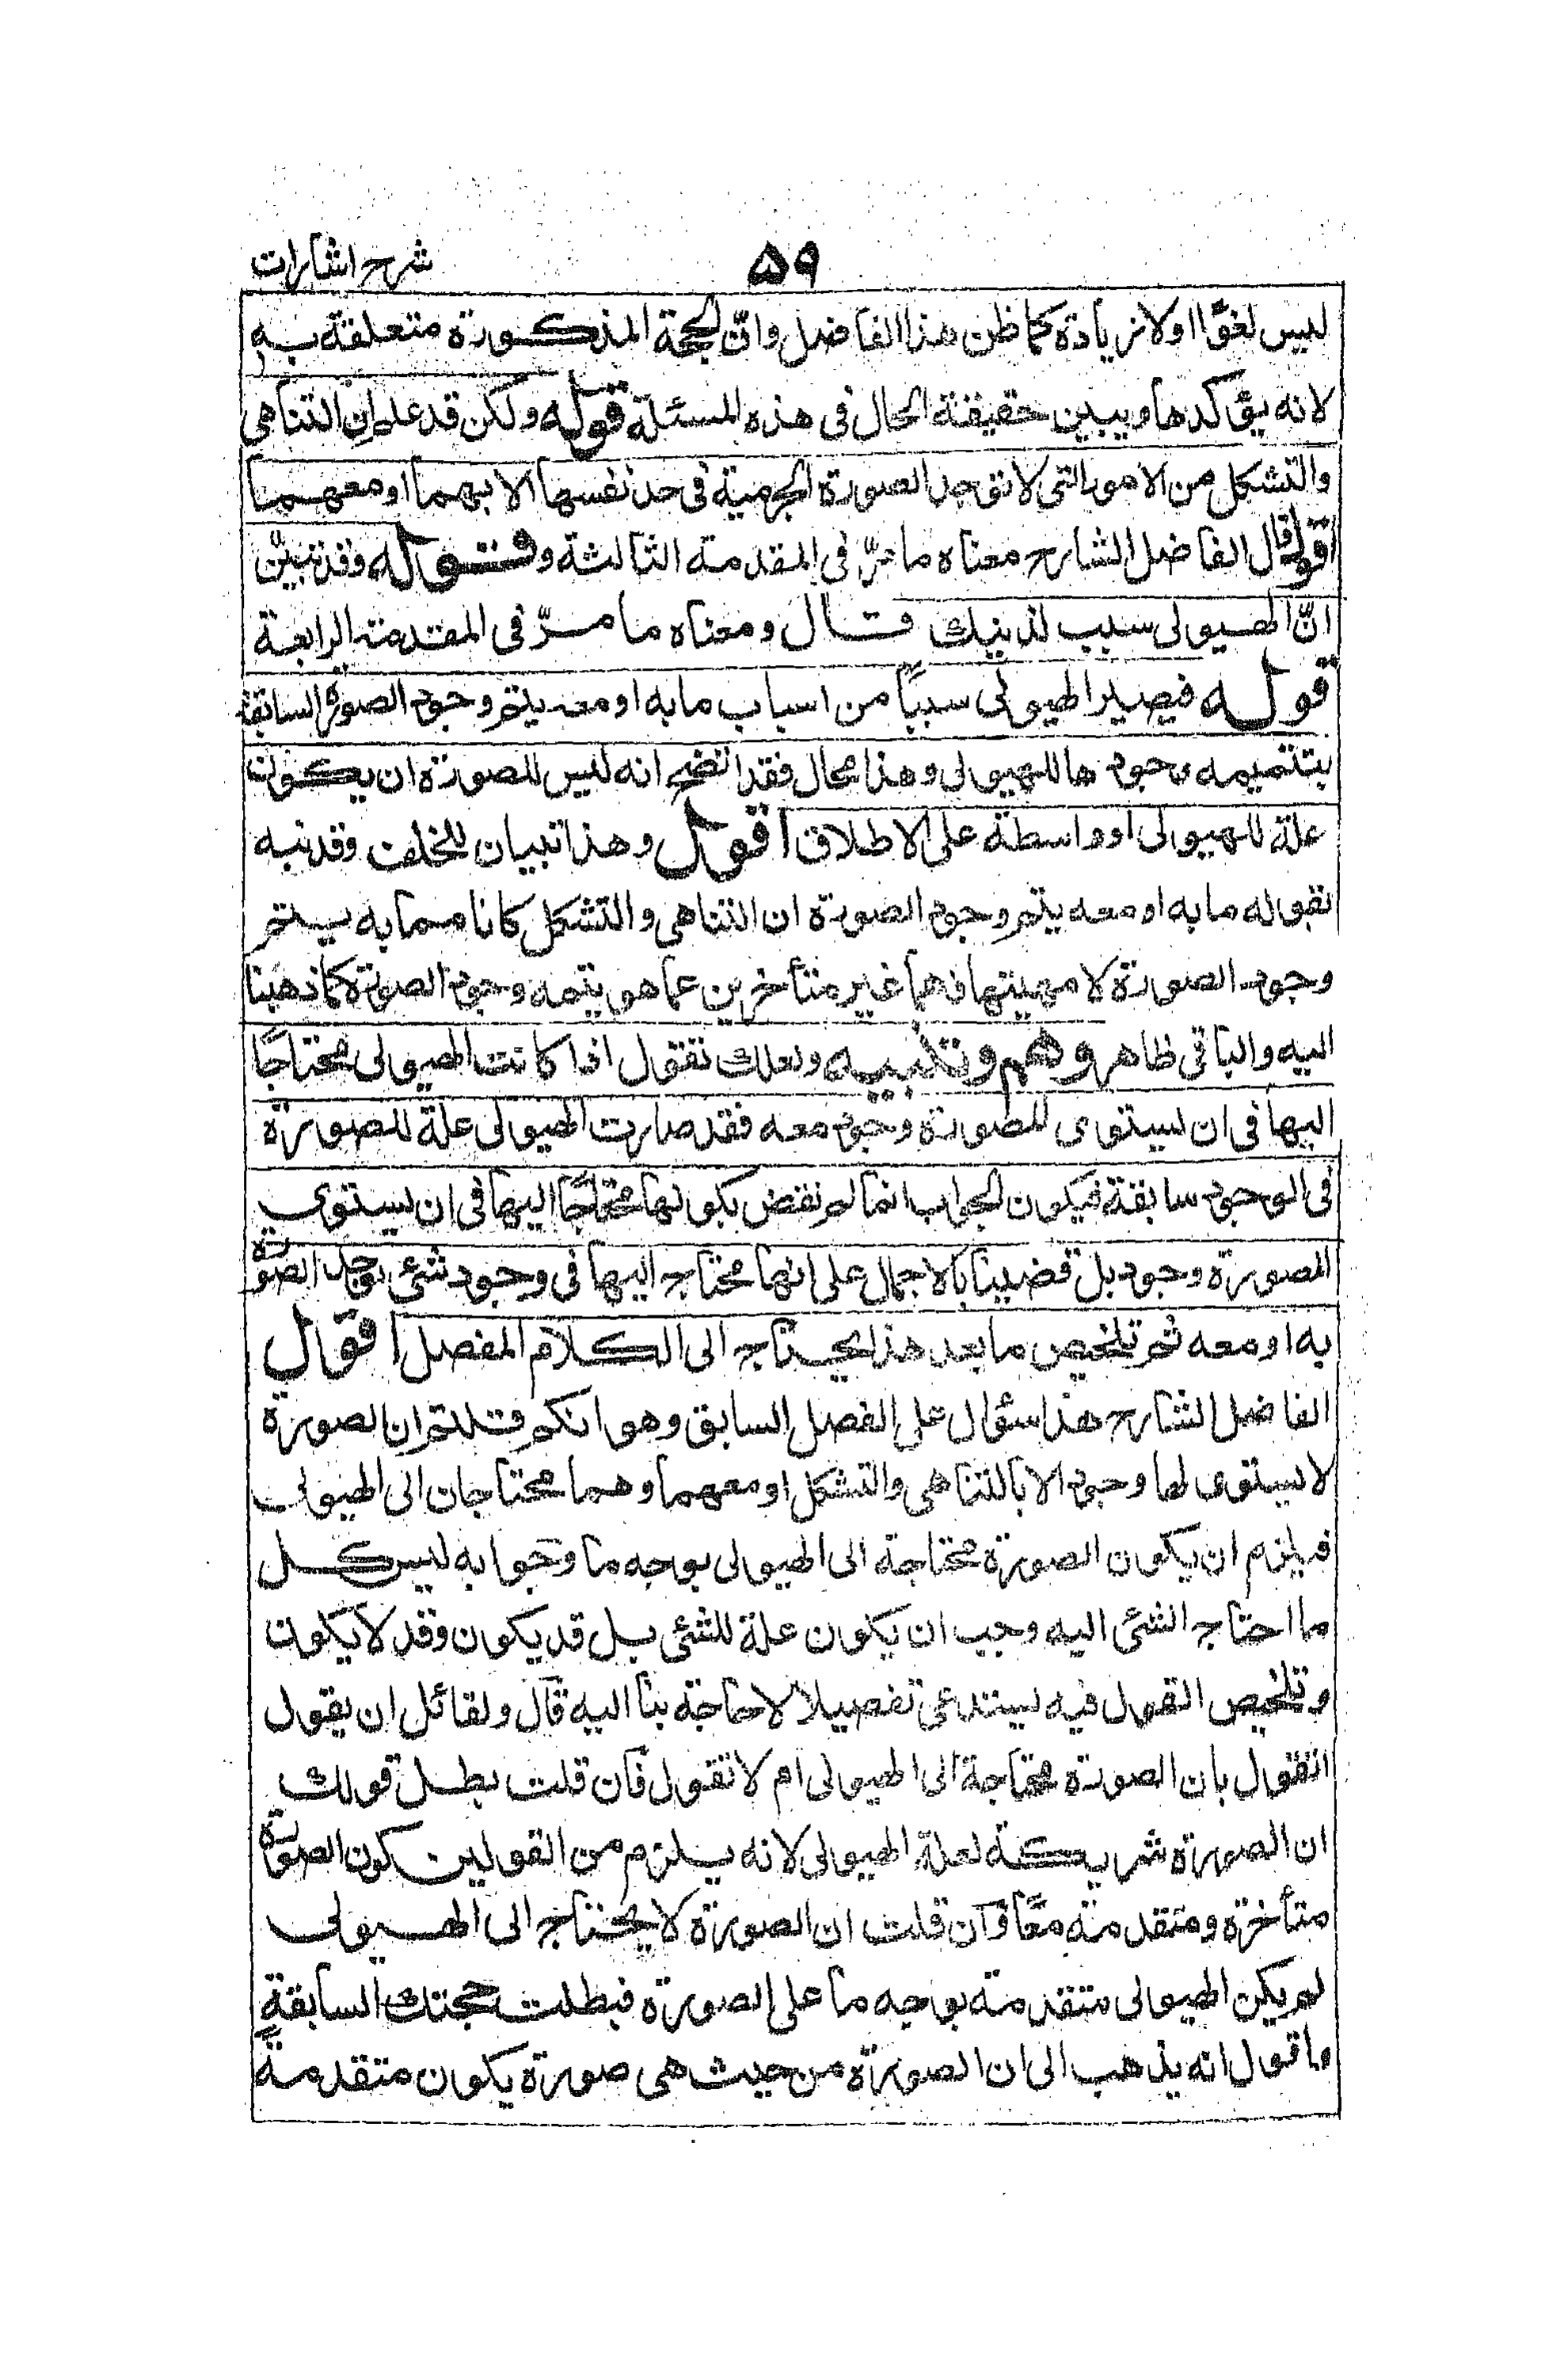 ۵۹
شرح اشارات
ليس لغوًا اولا زيادة كما ظن هذا الفاضل وانّ الحجة المذكورة متعلقة به
لانه يؤكدها ويبين حقيقة الحال فى هذه المسئلة قوله ولكن قد علم ان التناهى
والتشكل من الامور التى لا توجد الصورة الجرمية فى حد نفسها الا بهما او معهما
اقول قال الفاضل الشارح معناه ما مرّ فى المقدمة الثالثة وقوله وقد تبيّن
انّ الهيولى سبب لذينك قال ومعناه ما مرّ فى المقدمة الرابعة
قوله فيصير الهيولى سببًا من اسباب ما به او معه يتم وجود الصورة السابقة
بتتميمه وجودها للهيولى وهذا محال فقد اتضح انه ليس للصورة ان يكون
علة للهيولى او واسطة على الاطلاق اقول وهذا تبيان للخلف وقد نبه
بقوله ما به او معه يتم وجود الصورة ان التناهى والتشكل كانا مما به يتم
وجود الصورة لا مهيتها فهما غير متأخرين عما هو يتمه وجود الصورة كما ذهبنا
اليه والباقى ظاهر وهم وتنبيه ولعلك تقول اذا كانت الهيولى محتاجًا
اليها فى ان يستوى للصورة وجود معه فقد صارت الهيولى علة للصورة
فى الوجود سابقة فيكون الجواب انما لم نقض بكونها محتاجًا اليها فى ان يستوى
للصورة وجود بل قضينا بالاجمال على انها محتاج اليها فى وجود شئ توجد الصورة
به او معه ثم تلخيص ما بعد هذا يحتاج الى الكلام المفصل اقول
الفاضل الشارح هذا سؤال على الفصل السابق وهو انكم قلتم ان الصورة
لا يستوى لها وجود الا بالتناهى والتشكل او معهما وهما محتاجان الى الهيولى
فيلزم ان يكون الصورة محتاجة الى الهيولى بوجه ما وجوابه ليس كل
ما احتاج الشئ اليه وجب ان يكون علة للشئ بل قد يكون وقد لا يكون
وتلخيص القول فيه يستدعى تفصيلا لا حاجة بنا اليه قال ولقائل ان يقول
اتقول بان الصورة محتاجة الى الهيولى ام لا تقول فان قلت بطل قولك
ان الصورة شريكة لعلة الهيولى لانه يلزم من القولين كون الصورة
متأخرة ومتقدمة معًا وان قلت ان الصورة لا يحتاج الى الهيولى
لم يكن الهيولى متقدمة بوجه ما على الصورة فبطلت حجتك السابقة
واقول انه يذهب الى ان الصورة من حيث هى صورة يكون متقدمة